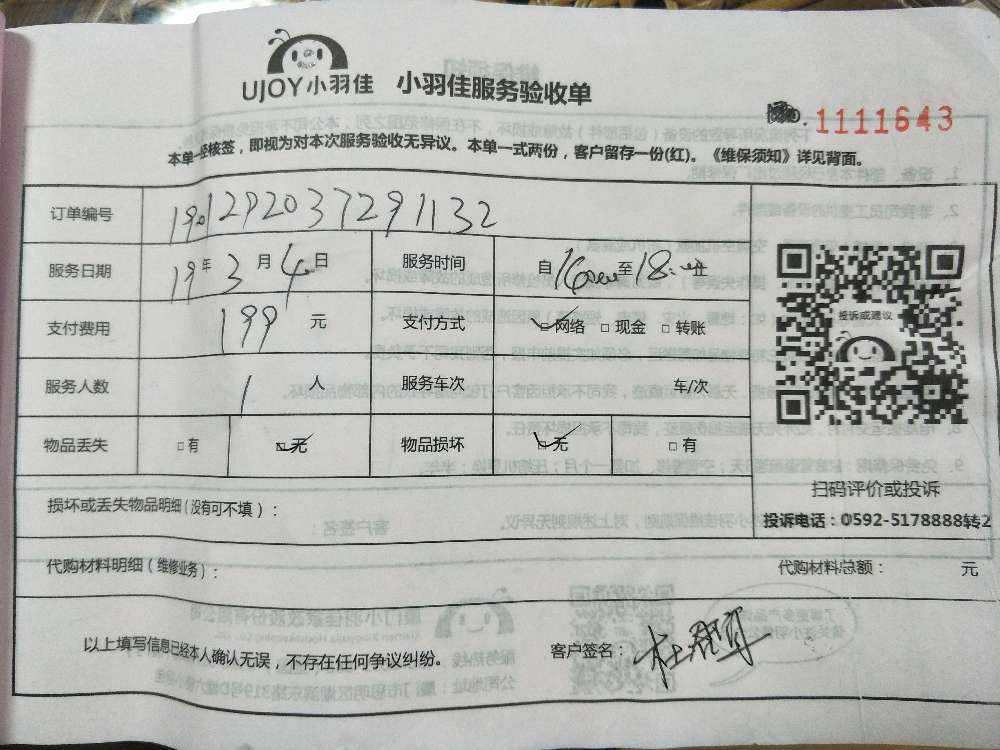 UJOY小羽佳 小羽佳服务验收单
1111643
本单一经核签，即视为对本次服务验收无异议。本单一式两份，客户留存一份(红)。《维保须知》详见背面。
订单编号 1901292037291132
服务日期 19年3月4日 服务时间 自16:00至18:00止
支付费用 199 元 支付方式 ☑网络 □现金 □转账
服务人数 1 人 服务车次 车/次
物品丢失 □有 ☑无 物品损坏 ☑无 □有
投诉或建议
扫码评价或投诉
损坏或丢失物品明细(没有可不填)：
投诉电话：0592-5178888转2
代购材料明细(维修业务)： 代购材料总额： 元
以上填写信息已经本人确认无误，不存在任何争议纠纷。 客户签名：